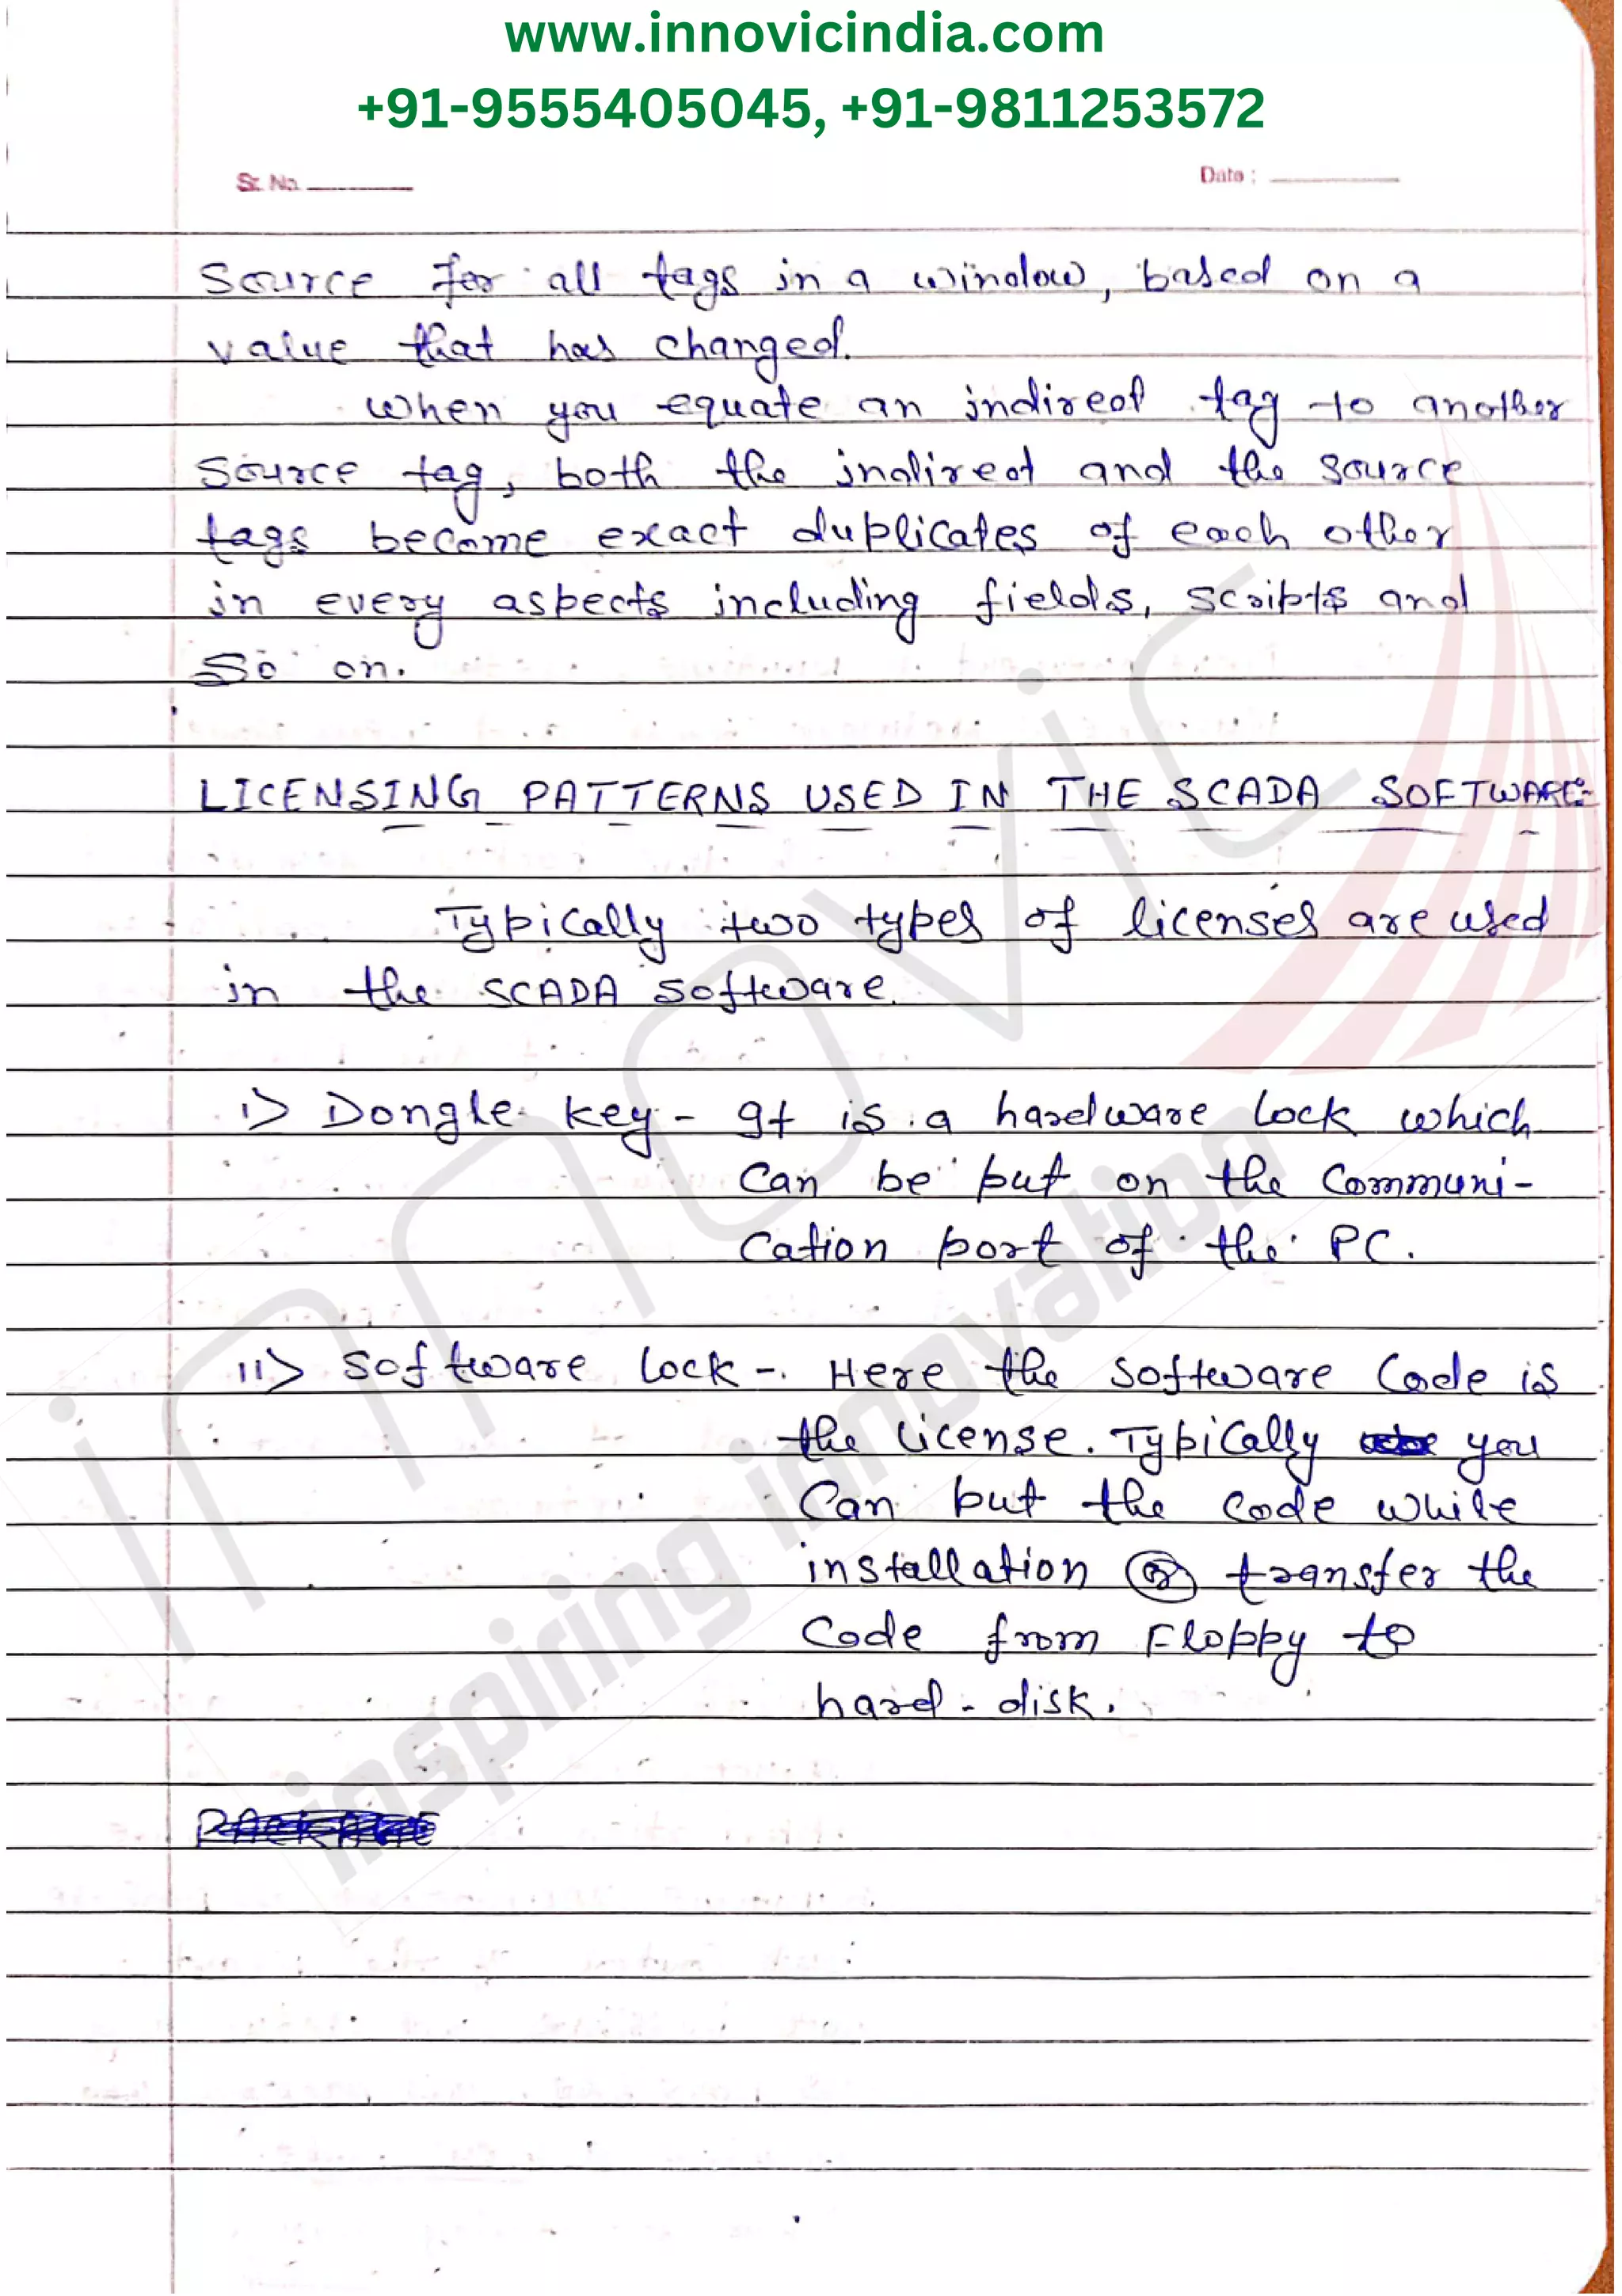 www.innovicindia.com
+91-9555405045, +91-9811253572
Sr. No.
Date :
Source for all tags in a window, based on a
value that has changed.
When you equate an indirect tag to another
Source tag, both the indirect and the source
tags become exact duplicates of each other
in every aspects including fields, scripts and
So on.
LICENSING PATTERNS USED IN THE SCADA SOFTWARE:-
Typically two types of licenses are used
in the SCADA Software.
i> Dongle key - It is a hardware lock which
Can be put on the Communi-
Cation port of the PC.
ii> Software lock - Here the Software Code is
the license. Typically you
Can put the code while
installation or transfer the
Code from Floppy to
hard-disk.
innovic
inspiring innovation